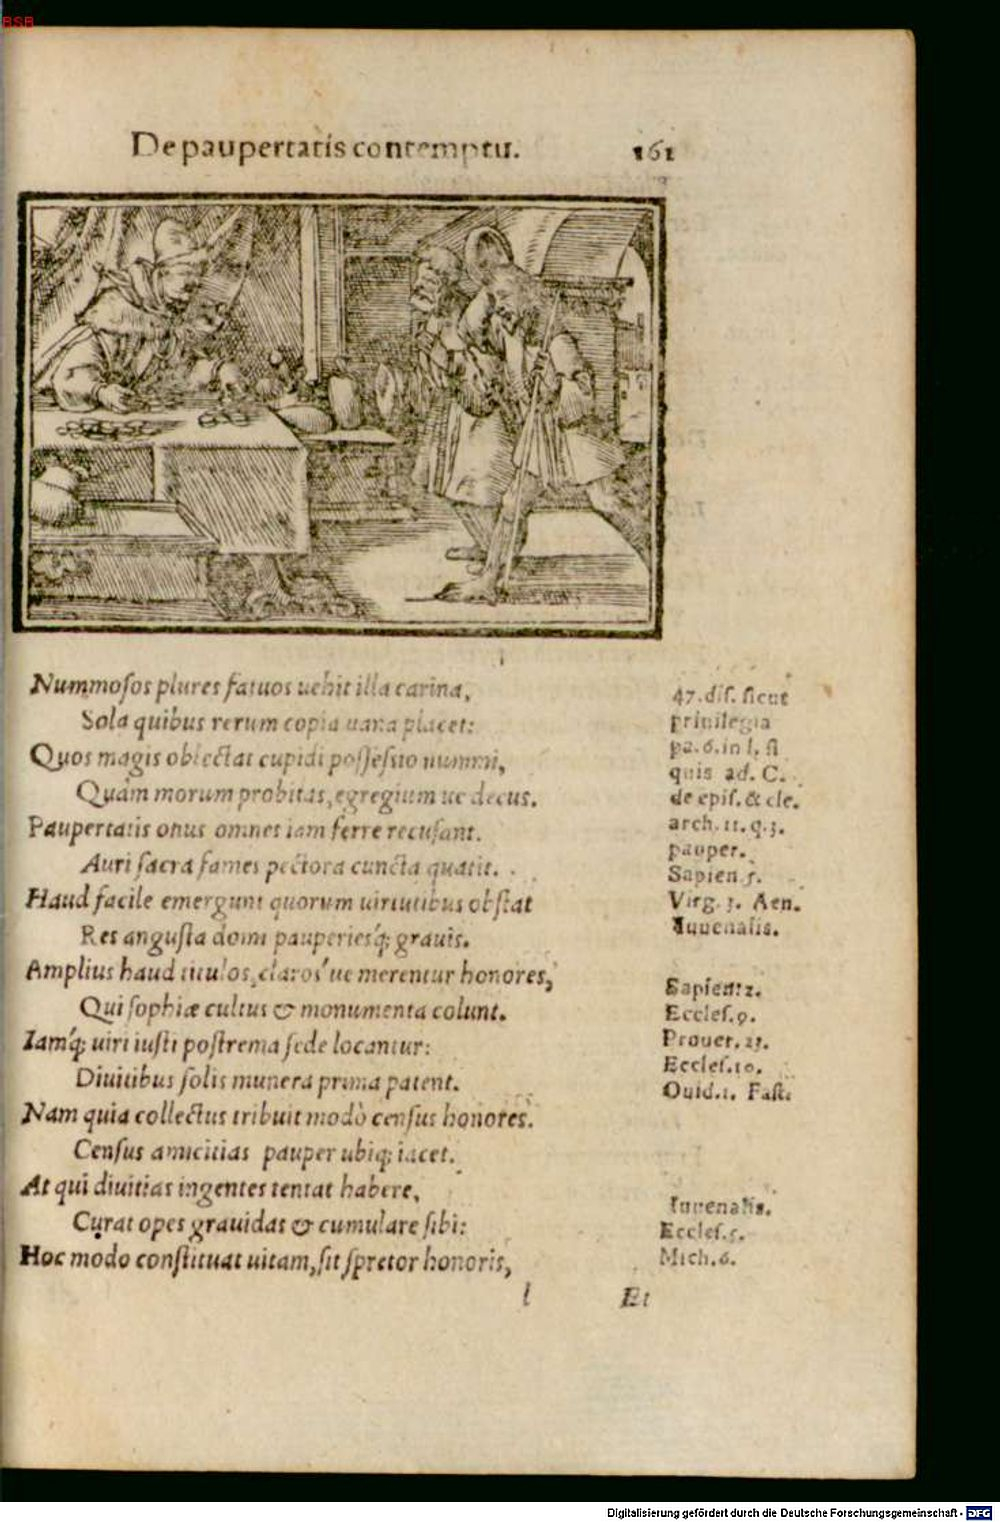 BSB
De paupertatis contemptu. 161
Nummoſos plures fatuos uehit illa carina,
Sola quibus rerum copia uana placet:
Quos magis oblectat cupidi poſſeſsio nummi,
Quàm morum probitas, egregium ue decus.
Paupertatis onus omnes iam ferre recuſant.
Auri ſacra fames pectora cuncta quatit.
Haud facile emergunt quorum uirtutibus obſtat
Res anguſta domi pauperiesq́; grauis.
Amplius haud titulos, claros'ue merentur honores,
Qui ſophiæ cultus & monumenta colunt.
Iamq́; uiri iuſti poſtrema ſede locantur:
Diuitibus ſolis munera prima patent.
Nam quia collectus tribuit modò cenſus honores.
Cenſus amicitias pauper ubiq; iacet.
At qui diuitias ingentes tentat habere,
Curat opes grauidas & cumulare ſibi:
Hoc modo conſtituat uitam, ſit ſpretor honoris,
l Et
47. diſ. ſicut
priuilegia
pa. 6. in l. ſi
quis ad. C.
de epiſ. & cle.
arch. 11. q. 3.
pauper.
Sapien 5.
Virg. 3. Aen.
Iuuenalis.
Sapient: 2.
Eccleſ. 9.
Prouer. 23.
Eccleſ. 10.
Ouid. 1. Faſt.
Iuuenalis.
Eccleſ. 5.
Mich. 6.
Digitalisierung gefördert durch die Deutsche Forschungsgemeinschaft - DFG